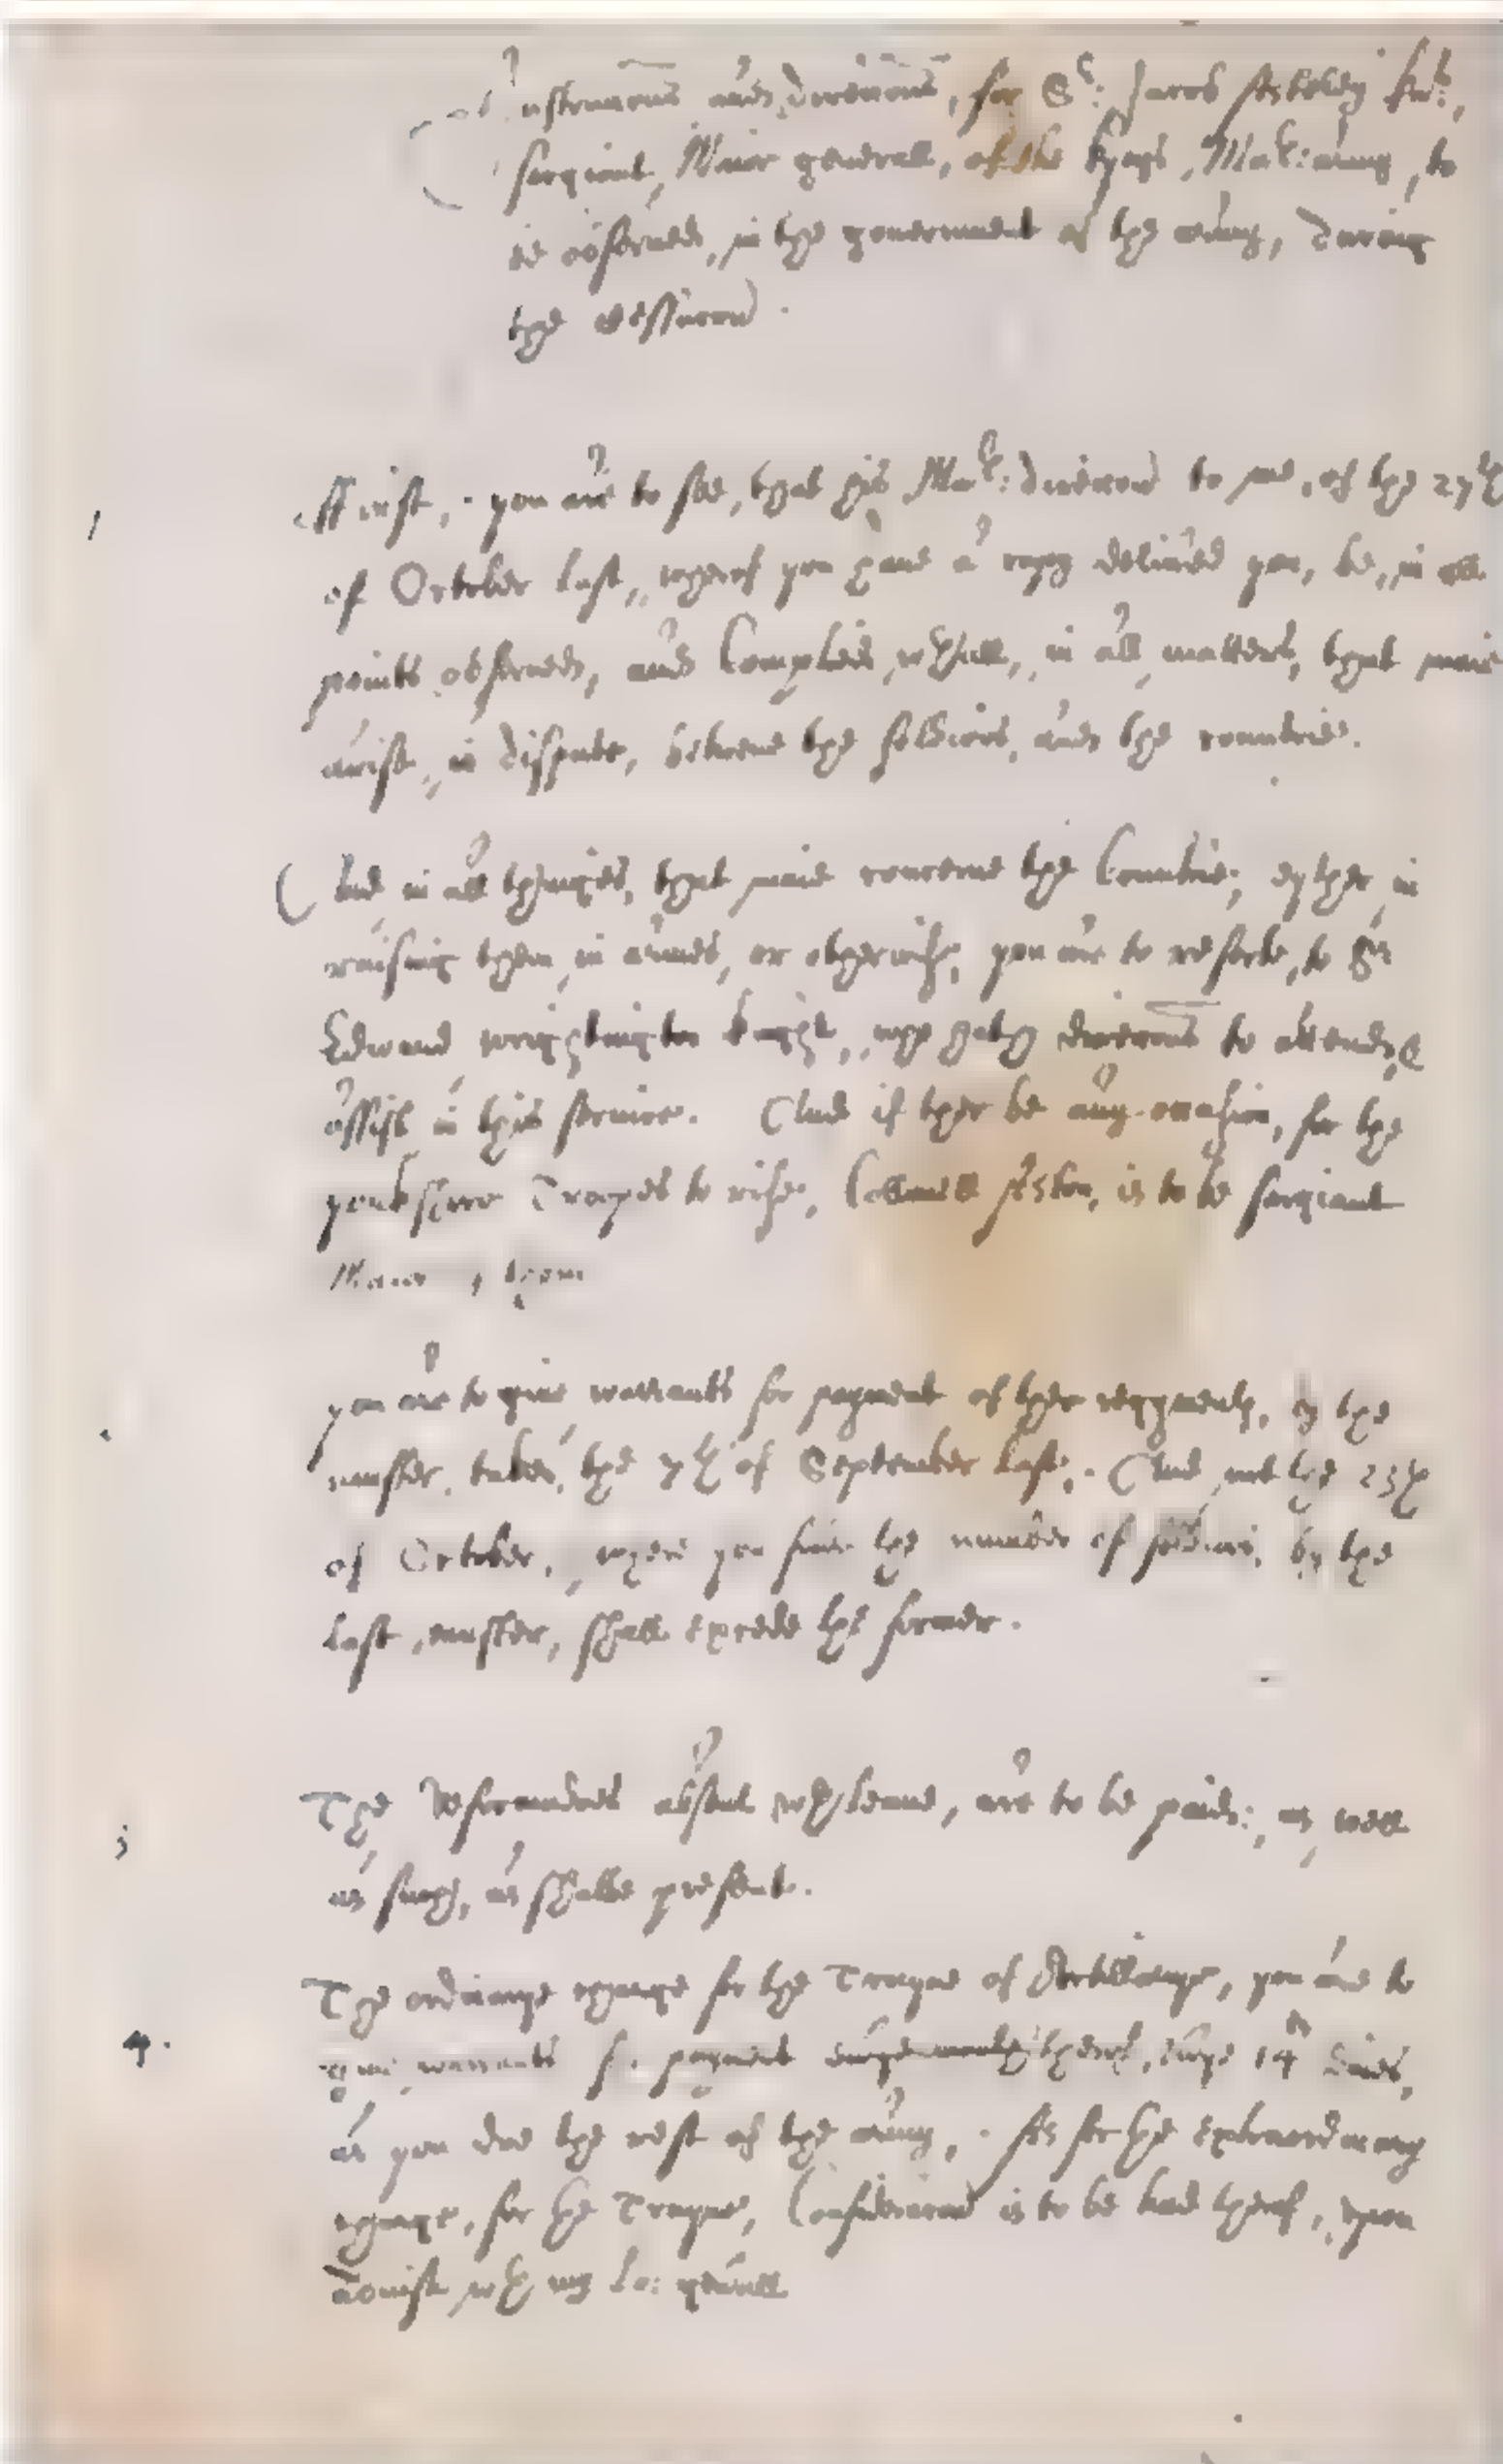 Instructions and directions, for Sr: Jacob Asteley knt:,
sergiant, Maior generall, of the kyngs, Mats: army, to
be obserued, in the gouernment of the army, during
the Cessacon.
1 ffirst, you are to see, that his Mats: direccon to me, of the 27th
of October last, wherof you haue a copy deliuered you, be, in all
points obserued, and Complied withall, in all matters, that maie
arise, in dispute, betwene the soldiors, and the countrie.
And in all thinges, that maie concerne the Countrie; eyther in
raising them, in armes, or otherwise, you are to resorte, to Sr
Edward wrightington knight, who hath direccons to attend, &
assist in this seruice. And if ther be any occasion, for the
yorkshire Troopes to rise, Collonell Aston, is to be sargiant
Maior, them
you are to giue warrants for payment of ther regyments, by the
muster, taken, the 7th of September last,. And not the 23th
of October, where you finde the number of soldiors, by the
last muster, shall excede the former.
3 The Reformadoes absent wth leaue, are to be paide:, as well
as such, as shalbe present.
The ordinarye charge for the Trayne of Artillarye, you are to
4. giue warrants for payment therof, euerye 14th daies,
as you doe the rest of the army,. As for the extraordinary
charge, for the Trayne, Consideracon is to be had therof, vpon
aduise wth my Lo: generall